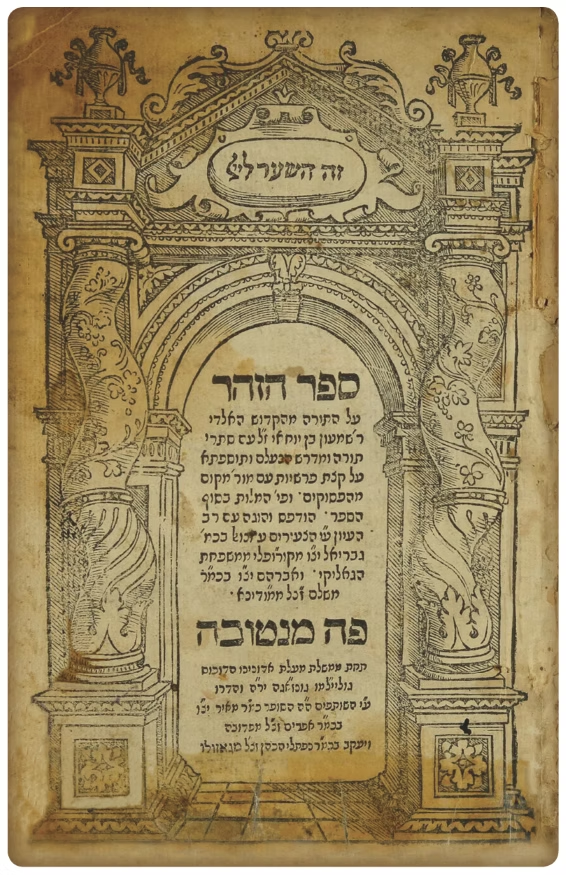 זה השער ליי
ספר הזהר
על התורה מהקדוש האלדי
ר׳שמעון בן יוחאי ז״ל עם סתרי
תורה ומדרש הנעלם ותוספתא
על קצת פרשיות עם מור׳ מקום
מהפסוקים · ופי׳ המלות בסוף
הספר · הודפס והוגה עם רב
העיון ע״י הצעירים עמנואל בכמ׳
גבריאל יצ״ו מקורופולי ממשפחת
הגאליקי · ואברהם יצ״ו בכמ״ר
משלם זכל ממודינא ·
פה מנטובה
תחת ממשלת מעלת אדונינו הדוכוס
גולייلמו גונזאגה יר״ה והדרו
ע״י השותפים הה הסופר כמ״ר מאיר יצ״ו
בכמ״ר אפרים זכ״ל מפדובה
ויעקב בכמ״ר נפתלי הכהן זכ״ל מגאזולו